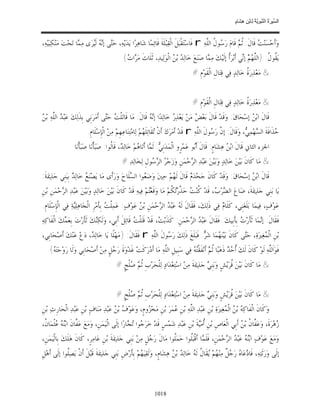 السِّيرَةُ النَّبَوِيَّةُ لِابْنِ هِشَامٍ
وَأَحْسَنْتَ قَالَ: ثُمَّ قَامَ رَسُولُ اللَّهِ r فَاسْتَقْبَلَ الْقِبْلَةَ قَائِمًا شَاهِرًا يَدَيْهِ، حَتَّى إِنَّهُ لَيُرَى مِمَّا تَحْتَ مَنْكِبَيْهِ،
يَقُولُ: (اللَّهُمَّ إِنِّي أَبْرَأُ إِلَيْكَ مِمَّا صَنَعَ خَالِدُ بْنُ الْوَلِيدِ، ثَلَاثَ مَرَّاتٍ)
& مَعْذِرَةُ خَالِدٍ فِي قِتَالِ الْقَوْمِ #
& مَعْذِرَةُ خَالِدٍ فِي قِتَالِ الْقَوْمِ #
قَالَ ابْنُ إِسْحَاقَ: وَقَدْ قَالَ بَعْضُ مَنْ يَعْذِرُ خَالِدًا إِنَّهُ قَالَ: مَا قَاتَلْتُ حَتَّى أَمَرَنِي بِذَلِكَ عَبْدُ اللَّهِ بْنُ
حُذَافَةَ السَّهْمِيُّ، وَقَالَ: إِنَّ رَسُولَ اللَّهِ r قَدْ أَمَرَكَ أَنْ تُقَاتِلَهُمْ لِامْتِنَاعِهِمْ مِنْ الْإِسْلَامِ.
الجزء الثاني قَالَ ابْنُ هِشَامٍ: قَالَ أَبُو عَمْرٍو الْمَدَنِيُّ: لَمَّا أَتَاهُمْ خَالِدٌ، قَالُوا: صَبَأْنَا صَبَأْنَا
& مَا كَانَ بَيْنَ خَالِدٍ وَبَيْنَ عَبْدِ الرَّحْمَنِ وَزَجْرُ الرَّسُولِ لِخَالِدٍ #
قَالَ ابْنُ إِسْحَاقَ: وَقَدْ كَانَ جَحْدَمٌ قَالَ لَهُمْ حِينَ وَضَعُوا السِّلَاحَ وَرَأَى مَا يَصْنَعُ خَالِدٌ بِبَنِي جَذِيمَةَ:
يَا بَنِي جَذِيمَةَ، ضَاعَ الضَّرْبُ، قَدْ كُنْتُ حَذَّرْتُكُمْ مَا وَقَعْتُمْ فِيهِ قَدْ كَانَ بَيْنَ خَالِدٍ وَبَيْنَ عَبْدِ الرَّحْمَنِ بْنِ
عَوْفٍ، فِيمَا بَلَغَنِي، كَلَامٌ فِي ذَلِكَ، فَقَالَ لَهُ عَبْدُ الرَّحْمَنِ بْنُ عَوْفٍ: عَمِلْتَ بِأَمْرِ الْجَاهِلِيَّةِ فِي الْإِسْلَامِ.
فَقَالَ: إِنَّمَا ثَأَرْتُ بِأَبِيكَ. فَقَالَ عَبْدُ الرَّحْمَنِ: كَذَبْتَ، قَدْ قَتَلْتُ قَاتِلَ أَبِي، وَلَكِنَّكَ ثَأَرْتَ بِعَمِّكَ الْفَاكِهِ
بْنِ الْمُغِيرَةِ، حَتَّى كَانَ بَيْنَهُمَا شَرٌّ. فَبَلَغَ ذَلِكَ رَسُولَ اللَّهِ r فَقَالَ: (مَهْلًا يَا خَالِدُ، دَعْ عَنْكَ أَصْحَابِي،
فَوَاَللَّهِ لَوْ كَانَ لَكَ أُحُدٌ ذَهَبًا ثُمَّ أَنْفَقْتَهُ فِي سَبِيلِ اللَّهِ مَا أَدْرَكْتَ غَدْوَةَ رَجُلٍ مِنْ أَصْحَابِي وَلَا رَوْحَتَهُ)
& مَا كَانَ بَيْنَ قُرَيْشٍ وَبَنِي جَذِيمَةَ مِنْ اسْتِعْدَادٍ لِلْحَرْبِ ثُمَّ صُلْحٍ #
& مَا كَانَ بَيْنَ قُرَيْشٍ وَبَنِي جَذِيمَةَ مِنْ اسْتِعْدَادٍ لِلْحَرْبِ ثُمَّ صُلْحٍ #
وَكَانَ الْفَاكِهُ بْنُ الْمُغِيرَةِ بْنِ عَبْدِ اللَّهِ بْنِ عُمَرَ بْنِ مَخْزُومٍ، وَعَوْفُ بْنُ عَبْدِ مَنَافِ بْنِ عَبْدِ الْحَارِثِ بْنِ
زُهْرَةَ، وَعَفَّانُ بْنُ أَبِي الْعَاصِ بْنِ أُمَيَّةَ بْنِ عَبْدِ شَمْسٍ قَدْ خَرَجُوا تُجَّارًا إِلَى الْيَمَنِ، وَمَعَ عَفَّانَ ابْنُهُ عُثْمَانُ،
وَمَعَ عَوْفٍ ابْنُهُ عَبْدُ الرَّحْمَنِ، فَلَمَّا أَقْبَلُوا حَمَلُوا مَالَ رَجُلٍ مِنْ بَنِي جَذِيمَةَ بْنِ عَامِرٍ، كَانَ هَلَكَ بِالْيَمَنِ،
إِلَى وَرَثَتِهِ، فَادَّعَاهُ رَجُلٌ مِنْهُمْ يُقَالُ لَهُ خَالِدُ بْنُ هِشَامٍ، وَلَقِيَهُمْ بِأَرْضِ بَنِي جَذِيمَةَ قَبْلَ أَنْ يَصِلُوا إِلَى أَهْلِ
1018